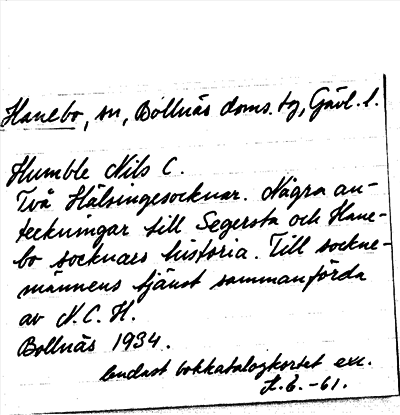 Hanebo, sn, Bollnäs doms. tg, Gävl. l.
Humble Nils C.
Två Hälsingesocknar. Några an-
teckningar till Segersta och Hane-
bo socknars historia. Till sockne-
männens tjänst sammanförda
av N.C.H.
Bollnäs 1934.
Endast bokkatalogkortet exc.
L.E.-61.